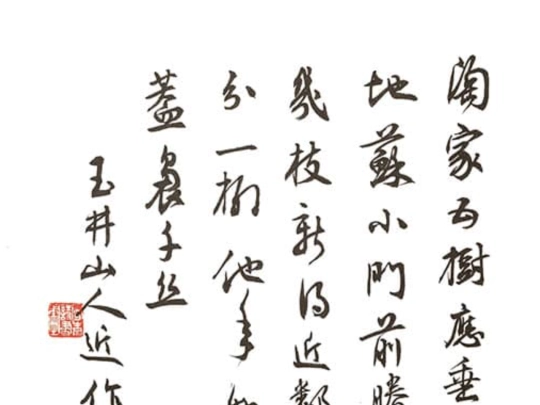 陶家五樹應垂
地蘇小門前勝
幾枝新得近鄰
分一他年
蓋裊千丝
玉井山人近作